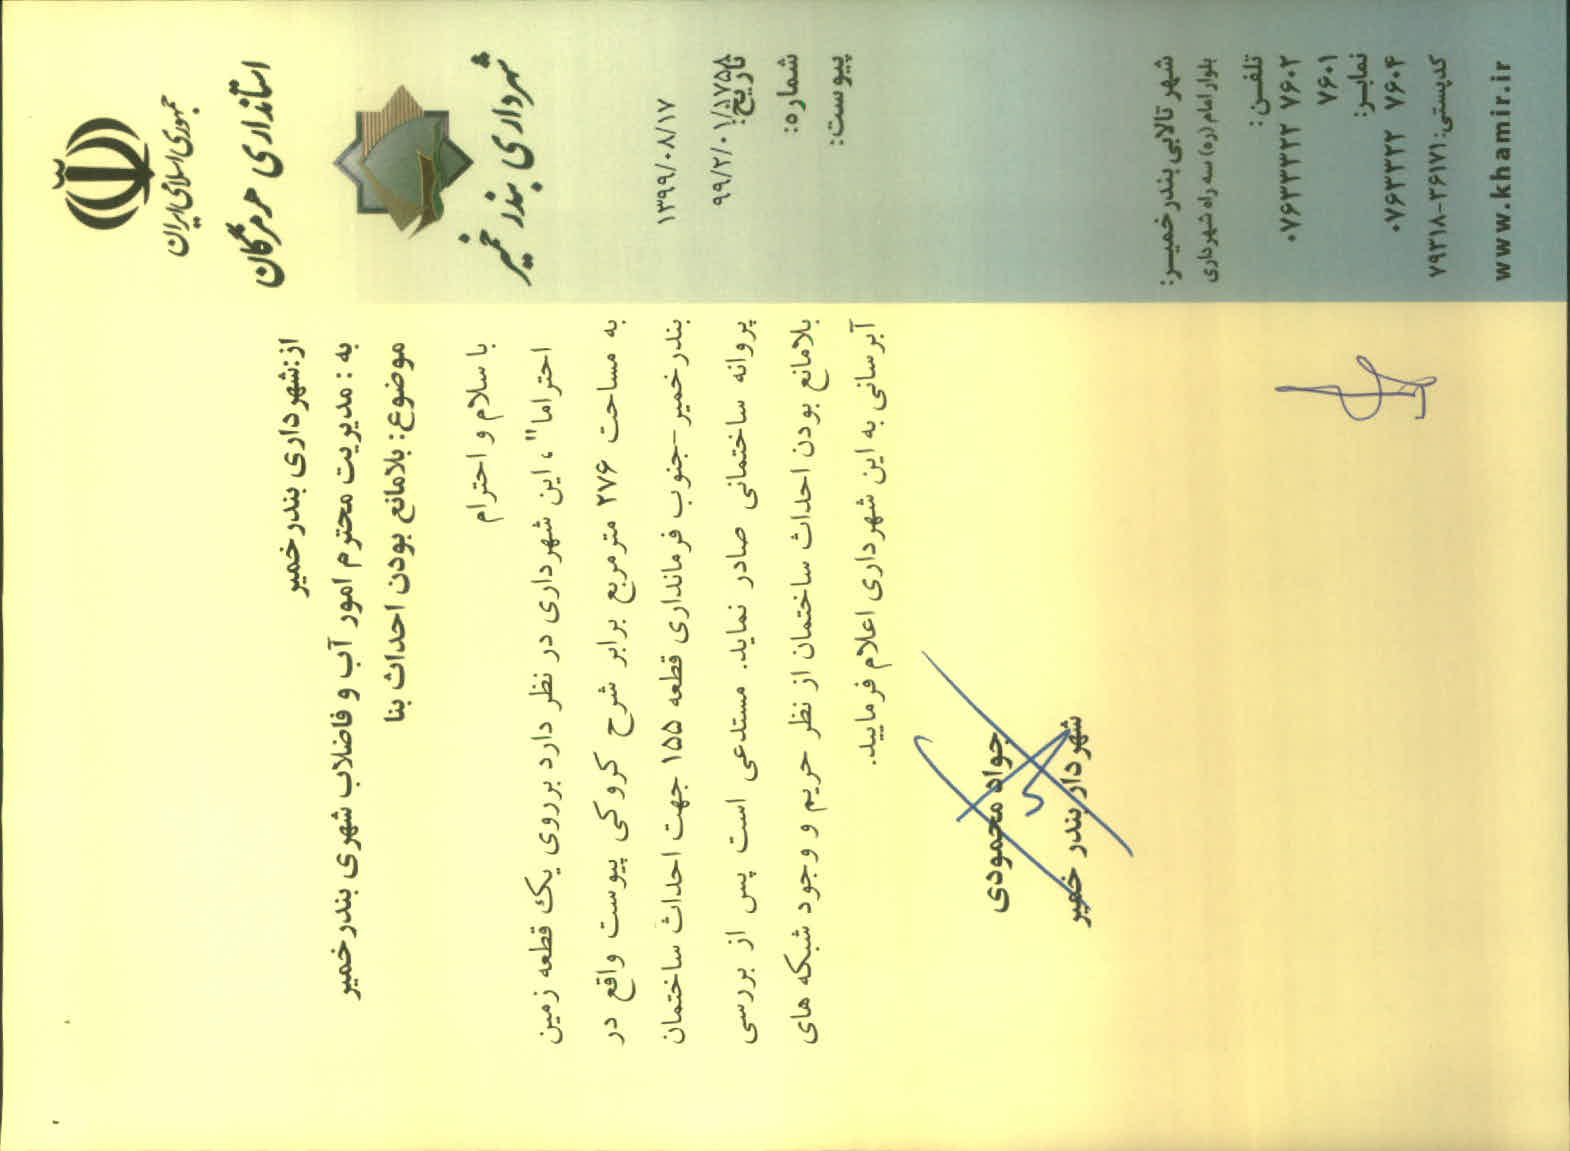 جمهوری اسلامی ایران
استانداری هرمزگان
شهرداری بندر خمیر
۱۳۹۹/۰۸/۱۷
تاریخ:
۹۹/۲/۰۱/۵۷۵۸
شماره:
پیوست:
از:شهرداری بندرخمیر
به : مدیریت محترم امور آب و فاضلاب شهری بندرخمیر
موضوع: بلامانع بودن احداث بنا
با سلام و احترام
احتراما" ، این شهرداری در نظر دارد برروی یک قطعه زمین
به مساحت ۲۷۶ مترمربع برابر شرح کروکی پیوست واقع در
بندرخمیر-جنوب فرمانداری قطعه ۱۵۵ جهت احداث ساختمان
پروانه ساختمانی صادر نماید. مستدعی است پس از بررسی
بلامانع بودن احداث ساختمان از نظر حریم و وجود شبکه های
آبرسانی به این شهرداری اعلام فرمایید.
جواد محمودی
شهردار بندر خمیر
شهر تالابی بندرخمیـر:
بلوار امام (ره) سه راه شهرداری
تلفـن:
۰۷۶۳۳۳۲ ۷۶۰۲
۷۶۰۱
نمابـر:
۰۷۶۳۳۳۲ ۷۶۰۴
کدپستی: ۷۹۳۱۸-۲۶۱۷۱
www.khamir.ir